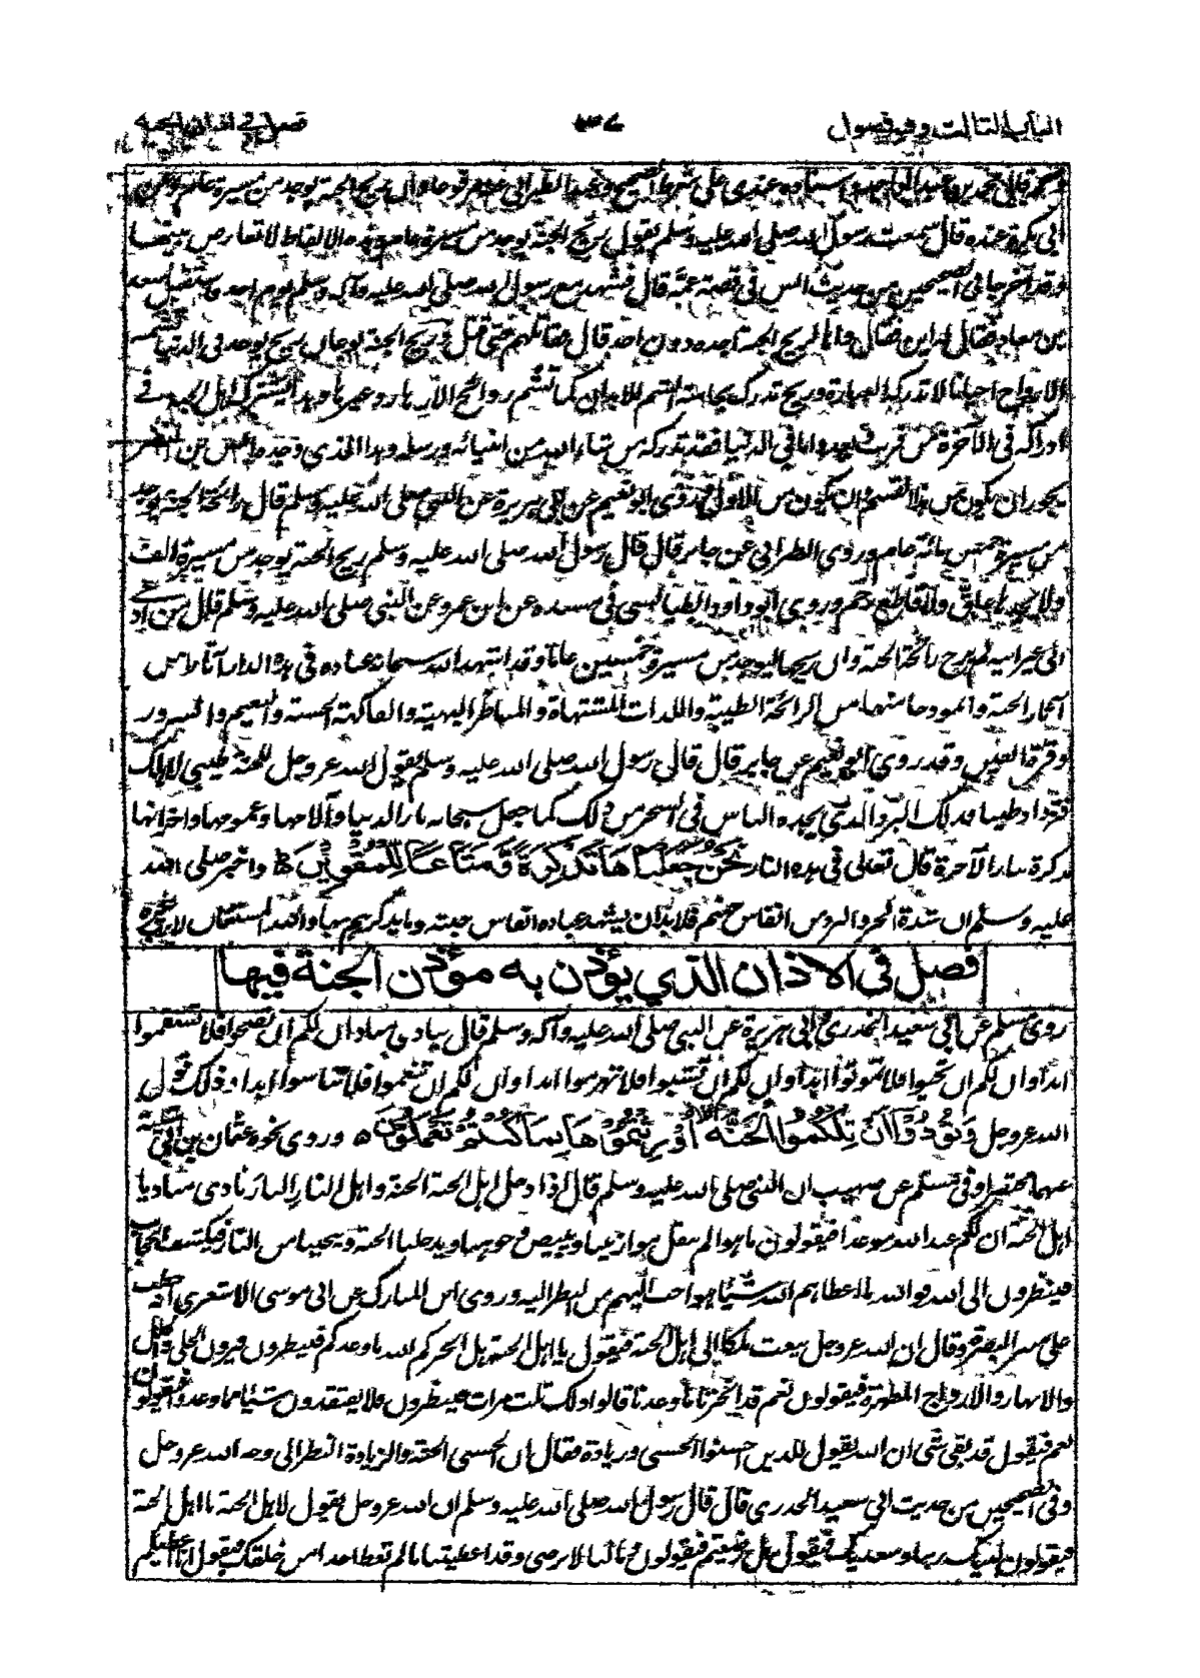 الباب الثالث وفيه فصول
٣٧
فصل في اذان الجنة
قال محمد بن عبد الواحد واسناده عندي على شرط الصحيح وعند الطبراني مرفوعا وان ريح الجنة يوجد من مسيرة عام وعن
ابي بكرة عنده قال سمعت رسول الله صلى الله عليه وسلم يقول ريح الجنة يوجد من مسيرة عام وهذه الالفاظ لا تعارض بينها
وقد اخرجا في الصحيحين من حديث انس في قصة عمه قال فشهد مع رسول الله صلى الله عليه وآله وسلم يوم احد فاستقبل سعد
بن معاذ فقال له اين فقال واها لريح الجنة اجده دون احد قال فقاتلهم حتى قتل وريح الجنة نوعان ريح يوجد في الدنيا تشمه
الارواح احيانا لا تدركه العبارة وريح تدرك بحاسة الشم للابدان كما تشم روائح الازهار وغيرها وهذا يشترك اهل الجنة في
ادراكه في الآخرة من قرب وبعد واما في الدنيا فقد تدركه من شاء الله من انبيائه ورسله وهذا الذي وجده انس بن النضر
يجوز ان يكون من هذا القسم وان يكون من الاول وروى ابو نعيم عن ابي هريرة عن النبي صلى الله عليه وسلم قال رائحة الجنة يوجد
من مسيرة خمس مائة عام وروى الطبراني عن جابر قال قال رسول الله صلى الله عليه وسلم ريح الجنة يوجد من مسيرة الف
ولا يجدها عاق ولا قاطع رحم وروى ابو داود الطيالسي في مسنده عن ابن عمرو عن النبي صلى الله عليه وسلم قال من ادعى
الى غير ابيه لم يرح رائحة الجنة وان ريحها ليوجد من مسيرة خمسين عاما وقد اشهد الله سبحانه عباده في هذه الدار آثارا من
آثار الجنة وانموذجا منها من الرائحة الطيبة واللذات المشتهاة والمناظر البهية والفاكهة الحسنة والنعيم والسرور
وقرة العين وقد روى ابو نعيم عن جابر قال قال رسول الله صلى الله عليه وسلم يقول الله عز وجل للجنة طيبي لاهلك
فتزداد طيبا فذلك البرد الذي يجده الناس في السحر من ذلك كما جعل سبحانه نار الدنيا وآلامها وغمومها واحزانها
تذكرة بنار الآخرة قال تعالى في هذه النار نَحْنُ جَعَلْنَاهَا تَذْكِرَةً وَّمَتَاعًا لِّلْمُقْوِيْنَ واخبر صلى الله
عليه وسلم ان شدة الحر والبرد من انفاس جهنم فلا بد ان يشهد عباده انفاس جنته وما يذكرهم بها والله المستعان لا رب غيره
فصل في الاذان الذي يؤذن به مؤذن الجنة فيها
روى مسلم عن ابي سعيد الخدري وابي هريرة عن النبي صلى الله عليه وآله وسلم قال ينادي مناد ان لكم ان تصحوا فلا تسقموا
ابدا وان لكم ان تحيوا فلا تموتوا ابدا وان لكم ان تشبوا فلا تهرموا ابدا وان لكم ان تنعموا فلا تبأسوا ابدا وذلك قول
الله عز وجل وَنُوْدُوْٓا اَنْ تِلْكُمُ الْجَنَّةُ اُوْرِثْتُمُوْهَا بِمَا كُنْتُمْ تَعْمَلُوْنَ ٥ وروى نحوه عثمان بن ابي شيبة
عنهما مختصرا وفي مسلم عن صهيب ان النبي صلى الله عليه وسلم قال اذا دخل اهل الجنة الجنة واهل النار النار نادى مناد يا
اهل الجنة ان لكم عند الله موعدا فيقولون ما هو الم يثقل موازيننا ويبيض وجوهنا ويدخلنا الجنة وينجينا من النار فيكشف الحجاب
فينظرون الى الله فوالله ما اعطاهم الله شيئا هو احب اليهم من النظر اليه وروى ابن المبارك عن ابي موسى الاشعري انه خطب
على منبر البصرة وقال ان الله عز وجل يبعث ملكا الى اهل الجنة فيقول يا اهل الجنة هل انجزكم الله ما وعدكم فينظرون فيرون الحلي والحلل
والانهار والازواج المطهرة فيقولون نعم قد انجزنا ما وعدنا قالوا ذلك ثلث مرات فينظرون فلا يفتقدون شيئا مما وعدوا فيقولون
نعم فيقول قد بقي شيء ان الله يقول للذين احسنوا الحسنى وزيادة فقال ان الحسنى الجنة والزيادة النظر الى وجه الله عز وجل
وفي الصحيحين من حديث ابي سعيد الخدري قال قال رسول الله صلى الله عليه وسلم ان الله عز وجل يقول لاهل الجنة يا اهل الجنة
فيقولون لبيك ربنا وسعديك فيقول هل رضيتم فيقولون وما لنا لا نرضى وقد اعطيتنا ما لم تعط احدا من خلقك فيقول انا اعطيكم